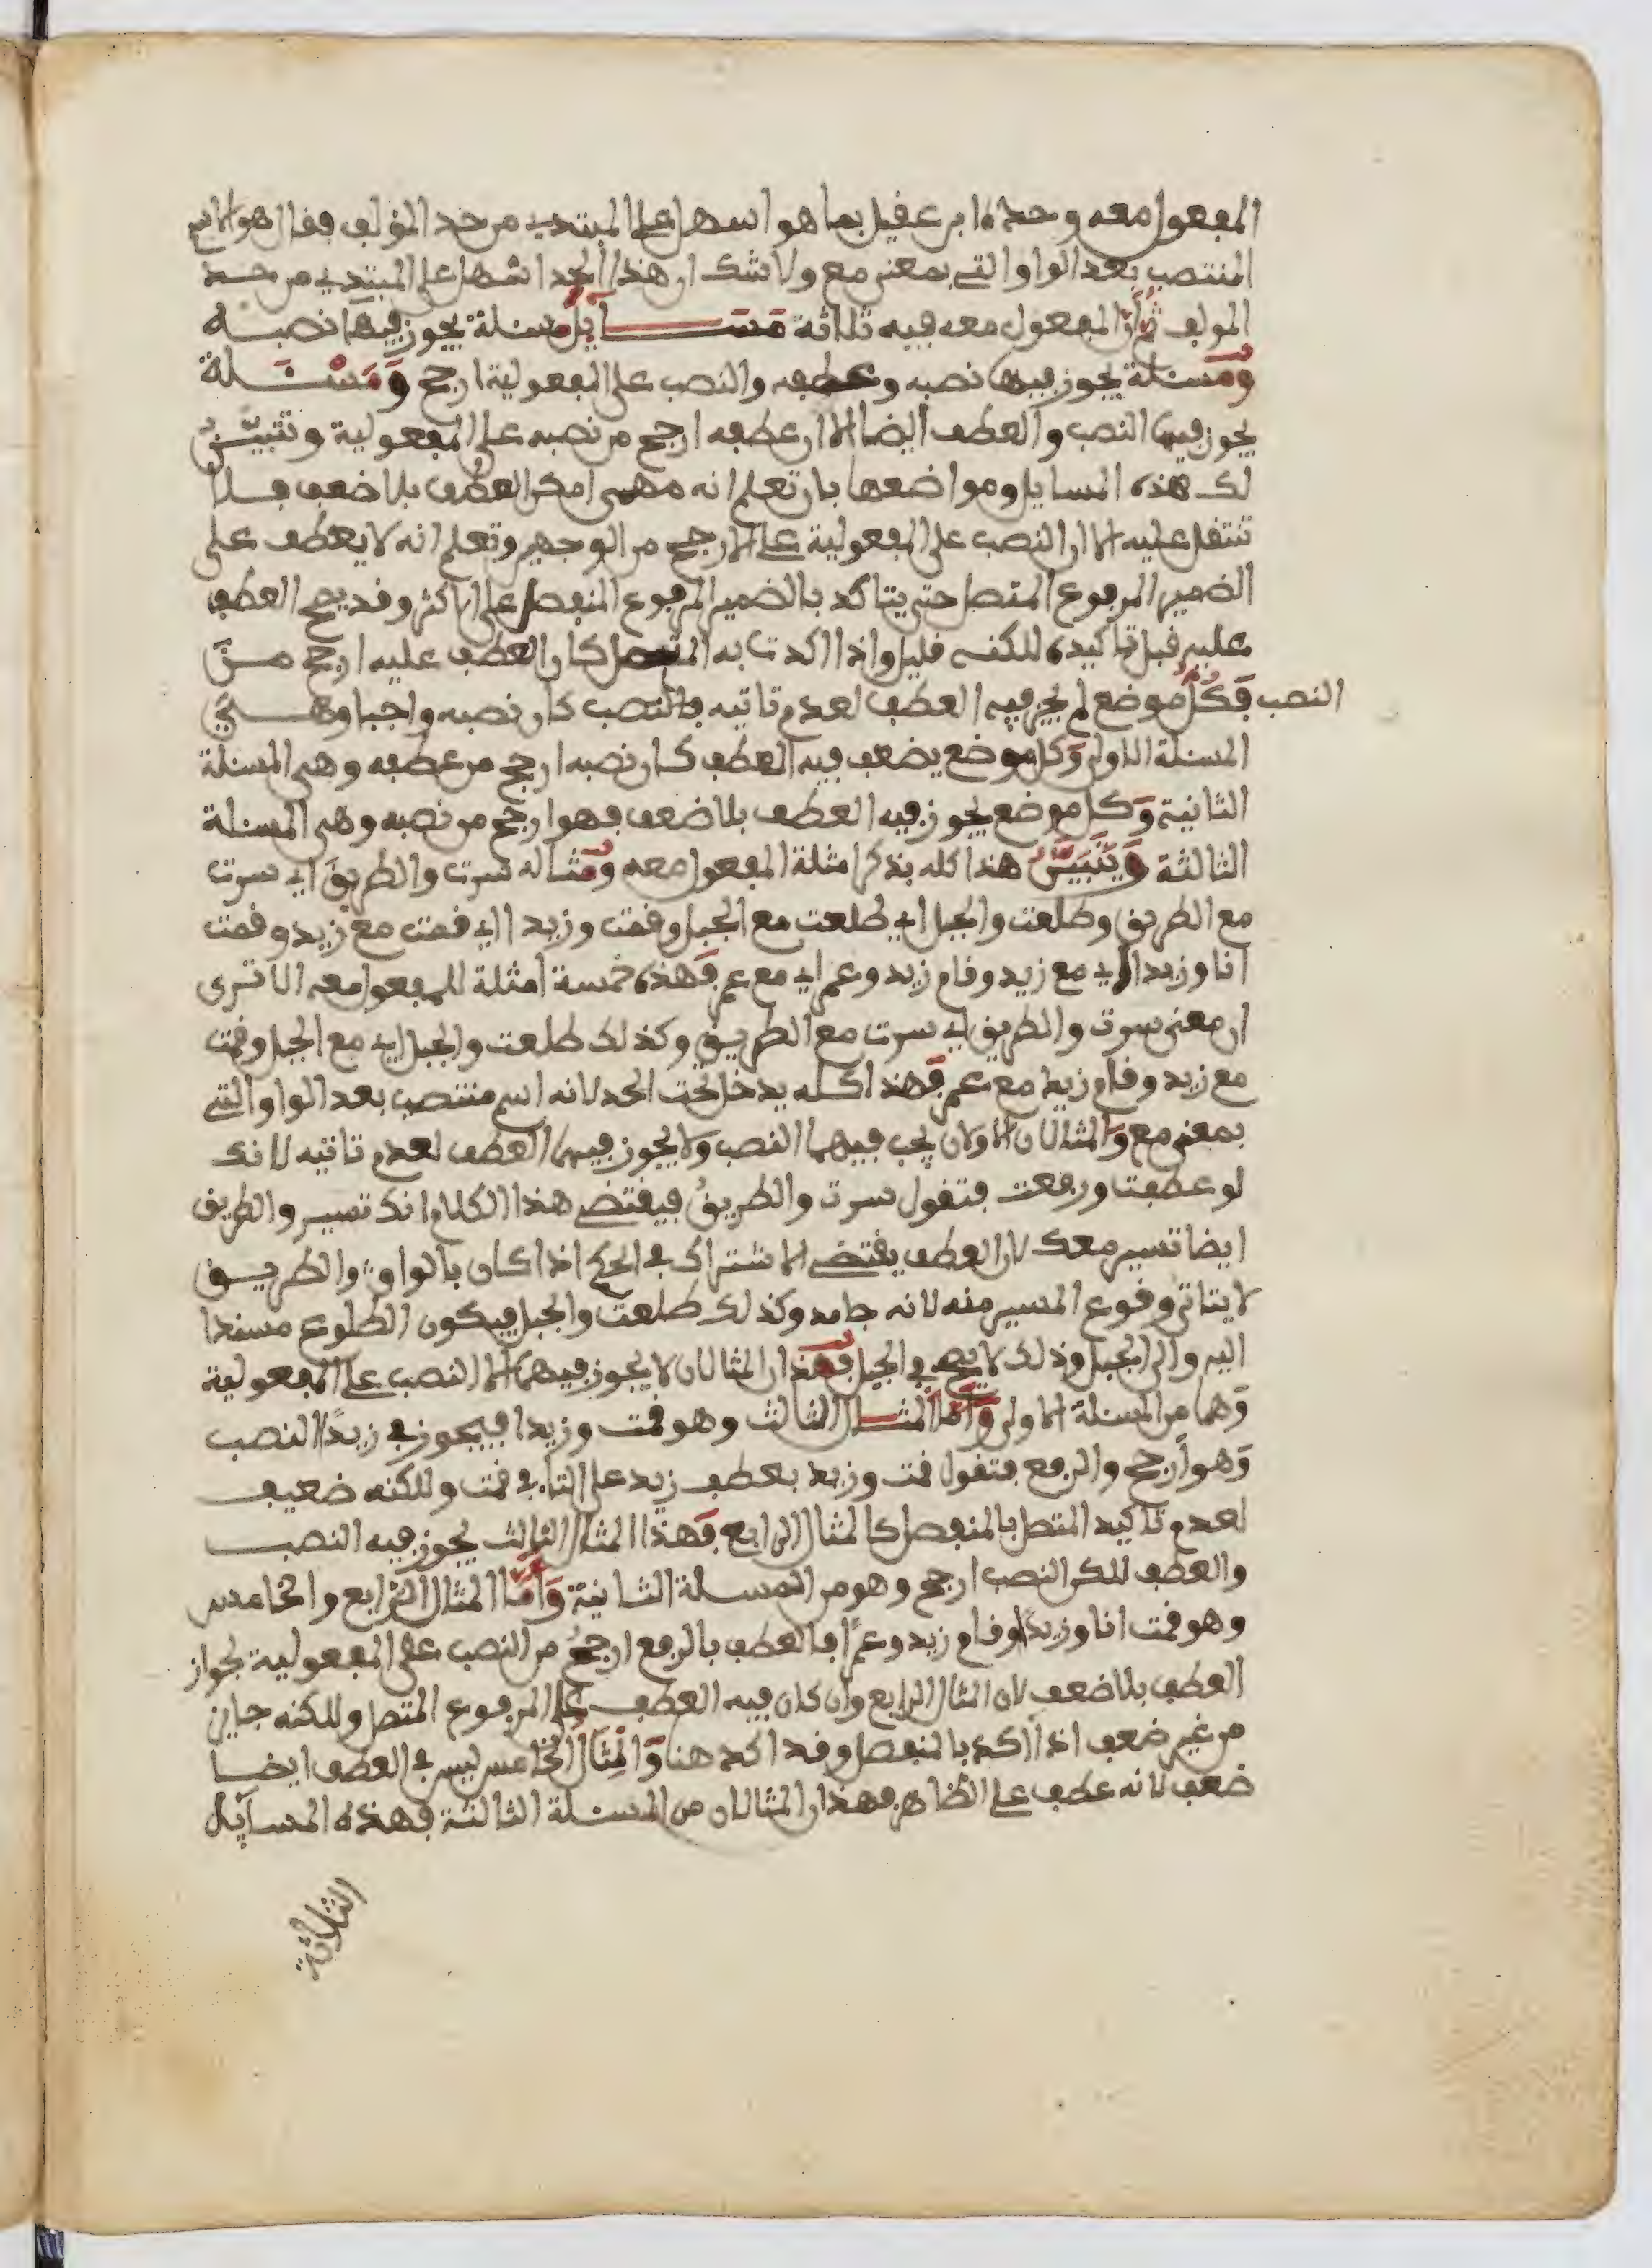 المفعول معه وحده ابن عقيل بما هو اسهل على المبتدي من حد المؤلف فقال هو الاسم
المنتصب بعد الواو التي بمعنى مع ولا شك ان هذا الحد اسهل على المبتدي من حد
المولف ثم ان المفعول معه فيه ثلاثة مسايل مسئلة يجوز فيها نصبه
ومسئلة يجوز فيها نصبه وعطفه والنصب على المفعولية ارجح ومسئلة
يجوز فيها النصب والعطف ايضا الا ان عطفه ارجح من نصبه على المفعولية وتتبيّن
لك هذه المسايل ومواضعها بان تعلم انه مهمى امكن العطف بلا ضعف فلا
تنتقل عليه الا ان النصب على المفعولية على الارجح من الوجهين وتعلم انه لا يعطف على
الضمير المرفوع المتصل حتى يتاكد بالضمير المرفوع المنفصل على الاكثر وقد يصح العطف
عليه قبل تاكيده للكنه قليل واذا اكدت به المتصل كان العطف عليه ارجح من
النصب فكل موضع لم يجز فيه العطف لعدم تاتيه فالنصب كان نصبه واجبا وهي
المسئلة الاولى وكل موضع يضعف فيه العطف كان نصبه ارجح من عطفه وهي المسئلة
الثانية وكل موضع يجوز فيه العطف بلا ضعف فهو ارجح من نصبه وهي المسئلة
الثالثة ويتبيّن هذا كله بذكر امثلة المفعول معه ومثاله سرت والطريق اي سرت
مع الطريق وطلعت والجبل اي طلعت مع الجبل وقمت وزيدا اي قمت مع زيد وقمت
انا وزيدا اي مع زيد وقام زيد وعمرا اي مع عمر فهذه خمسة امثلة للمفعول معه الا ترى
ان معنى سرت والطريق اي سرت مع الطريق وكذلك طلعت والجبل اي مع الجبل وقمت
مع زيد وقام زيد مع عمر فهذا كله يدخل تحت الحد لانه اسم منتصب بعد الواو التي
بمعنى مع والمثالان الاولان يجب فيهما النصب ولا يجوز فيهما العطف لعدم تاتيه لانك
لو عطفت ورفعت فتقول سرت والطريقُ فيقتضي هذا الكلام انك تسير والطريق
ايضا تسير معك لان العطف يقتضي الاشتراك في الحكم اذا كان بالواو والطريق
لا يتاتى وقوع المسير منه لانه جامد وكذلك طلعت والجبل فيكون الطلوع مسندا
اليه والى الجبل وذلك لا يصح في الجبل فهذان المثالان لا يجوز فيهما الا النصب على المفعولية
وهما من المسئلة الاولى وأمّا المثال الثالث وهو قمت وزيدا فيجوز في زيدًا النصب
وهو ارجح والرفع فتقول قمت وزيد بعطف زيد على التاء في قمت وللكنه ضعيف
لعدم تاكيد المتصل بالمنفصل كالمثال الرابع فهذا المثال الثالث يجوز فيه النصب
والعطف للكن النصب ارجح وهو من المسلة الثانية وأمّا المثال الرابع والخامس
وهو قمت انا وزيدا وقام زيد وعمرًا فالعطف بالرفع ارجحُ من النصب على المفعولية لجواز
العطف بلا ضعف لان المثال الرابع وان كان فيه العطف على المرفوع المتصل وللكنه جايز
من غير ضعف اذا أكد بالمنفصل وقد اكد هنا والمثال الخامس ليس في العطف ايضا
ضعف لانه عطف على الظاهر فهذان المثالان من المسئلة الثالثة فهذه المسايل
الثلاثة